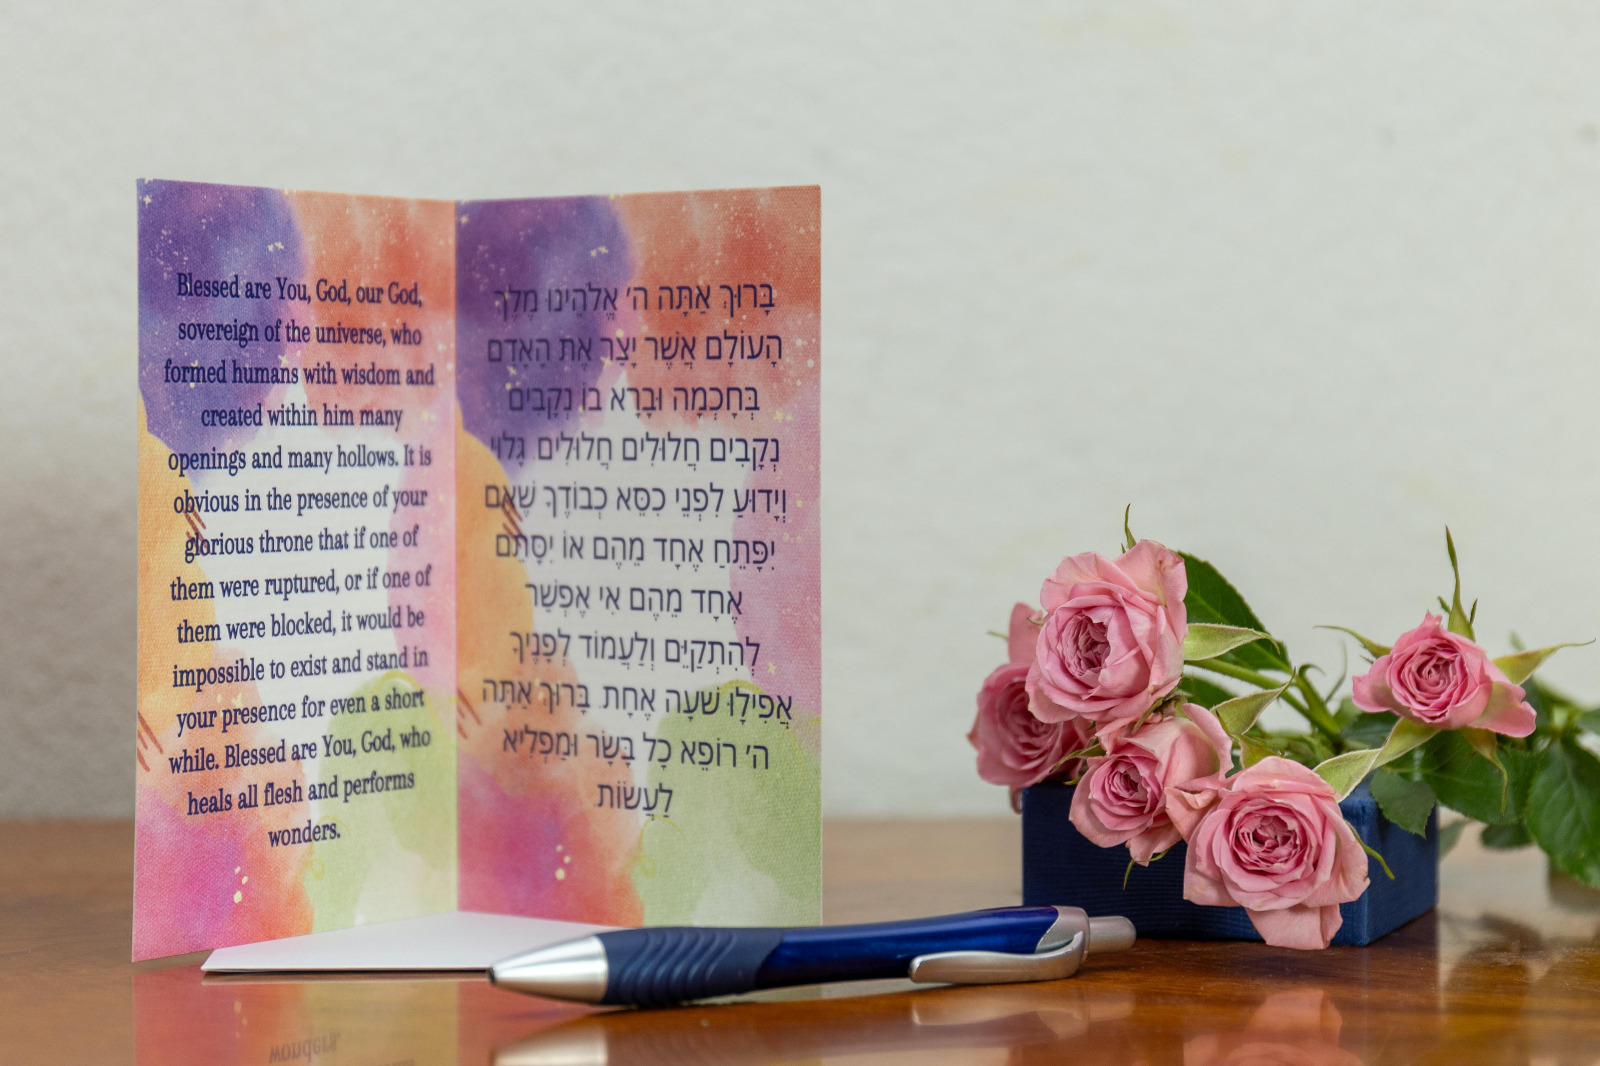 Blessed are You, God, our God,
sovereign of the universe, who
formed humans with wisdom and
created within him many
openings and many hollows. It is
obvious in the presence of your
glorious throne that if one of
them were ruptured, or if one of
them were blocked, it would be
impossible to exist and stand in
your presence for even a short
while. Blessed are You, God, who
heals all flesh and performs
wonders.
בָּרוּךְ אַתָּה ה' אֱלֹהֵינוּ מֶלֶךְ
הָעוֹלָם אֲשֶׁר יָצַר אֶת הָאָדָם
בְּחָכְמָה וּבָרָא בוֹ נְקָבִים
נְקָבִים חֲלוּלִים חֲלוּלִים. גָּלוּי
וְיָדוּעַ לִפְנֵי כִסֵּא כְבוֹדֶךָ שֶׁאִם
יִפָּתֵחַ אֶחָד מֵהֶם אוֹ יִסָּתֵם
אֶחָד מֵהֶם אִי אֶפְשַׁר
לְהִתְקַיֵּם וְלַעֲמוֹד לְפָנֶיךָ
אֲפִילּוּ שָׁעָה אֶחָת. בָּרוּךְ אַתָּה
ה' רוֹפֵא כָל בָּשָׂר וּמַפְלִיא
לַעֲשׂוֹת